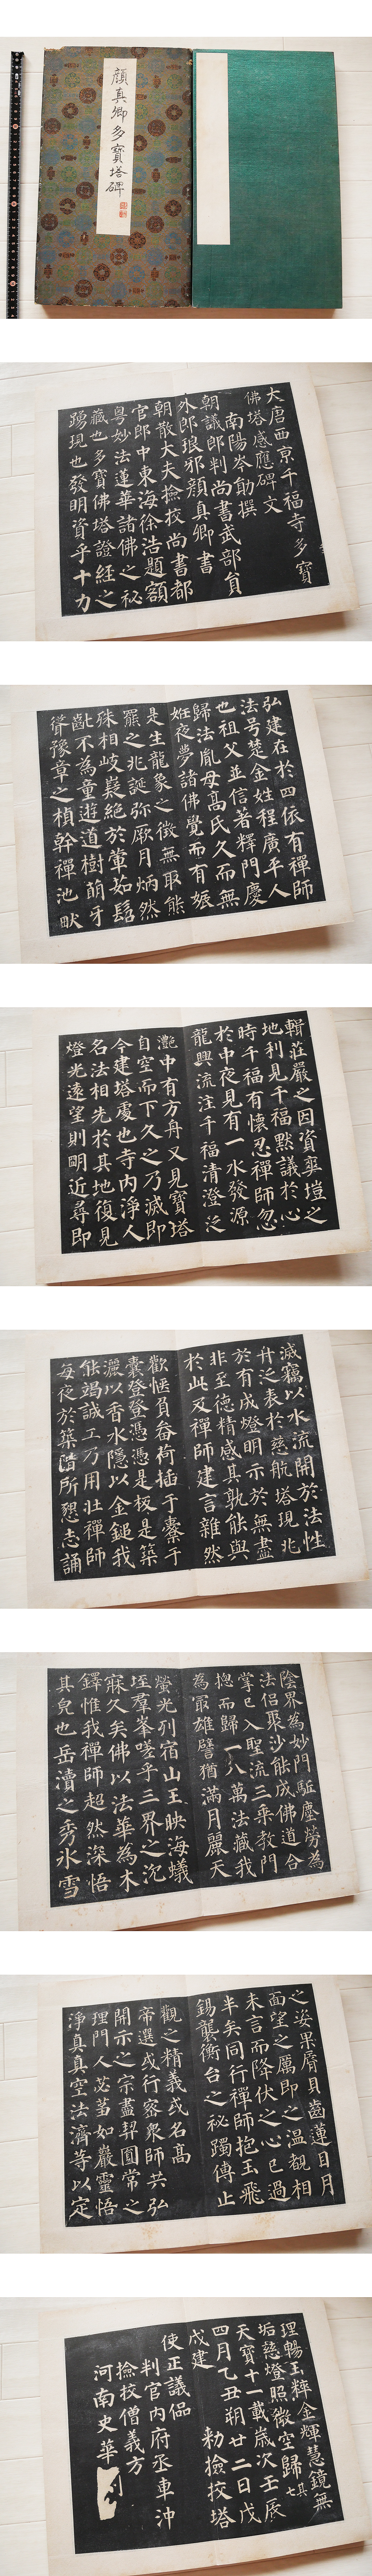 顔真卿多寶塔碑
大唐西京千福寺多寶
佛塔感應碑文
南陽岑勛撰
朝議郎判尚書武部員
外郎琅邪顔真卿書
朝散大夫撿挍尚書都
官郎中東海徐浩題額
粵妙法蓮華諸佛之秘
藏也多寶佛塔證經之
踴現也發明資乎十力
弘建在於四依有禪師
法号楚金姓程廣平人
也祖父並信著釋門慶
歸法胤母高氏久而無
姙夜夢諸佛覺而有娠
是生龍象之徵無取熊
羆之兆誕弥厥月炳然
殊相岐嶷絕於葷茹髫
齔不為童遊道樹萌牙
聳豫章之楨幹禪池畎
輯莊嚴之因資爽塏之
地利見千福默議於心
時千福有懷忍禪師忽
於中夜見有一水發源
龍興流注千福清澄泛
灩中有方舟又見寶塔
自空而下久之乃滅即
今建塔處也寺内淨人
名法相先於其地復見
燈光遠望則明近尋即
滅竊以水流開於法性
舟之表於慈航塔現兆
於有成燈明示於無盡
非至德精感其孰能與
於此及禪師建言雜然
歡愜負畚荷插于橐于
囊登登憑憑是板是築
灑以香水隱以金鎚我
能竭誠工乃用壯禪師
每夜於築階所懇志誦
陰界為妙門駈塵勞為
法侶聚沙能成佛道合
掌已入聖流三乘教門
揔而歸一八萬法藏我
為最雄譬猶滿月麗天
螢光列宿山王映海蟻
垤群峯嗟乎三界之沉
寐久矣佛以法華為木
鐸惟我禪師超然深悟
其皃也岳瀆之秀水雪
之姿果脣貝齒蓮目月
面望之厲即之温覩相
未言而降伏之心已過
半矣同行禪師抱玉飛
錫襲衡台之秘躅傳止
觀之精義或名高
帝選或行密衆師共弘
開示之宗盡契圓常之
理門人苾蒭如巖靈悟
淨真真空法濟等以定
理暢玉粹金輝慧鏡無
垢慈燈照微空歸
七其
天寶十一載歲次壬辰
四月乙丑朔廿二日戊
戌建
勑撿挍塔
使正議
判官内府丞車沖
撿挍僧義方
河南史華